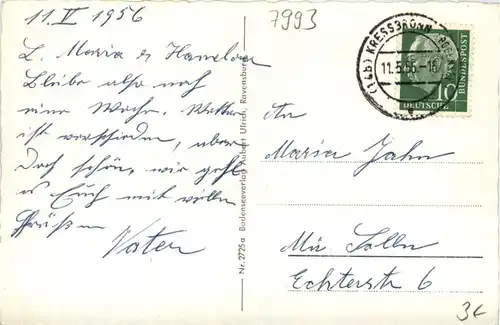 11. V 1956
7993
L. Maria & Hannelore
Bleibe also noch
eine Woche. Wetter
ist verschieden, aber
doch schön, wie geht
es Euch mit vielen
Grüßen
Vater
Nr. 2725a Bodenseeverlag Hubert Ulrich, Ravensburg
(14b) KRESSBRONN
11.5.56-18
10
DEUTSCHE
BUNDESPOST
An
Maria Jahn
Mü. Solln
Echterstr 6
3€